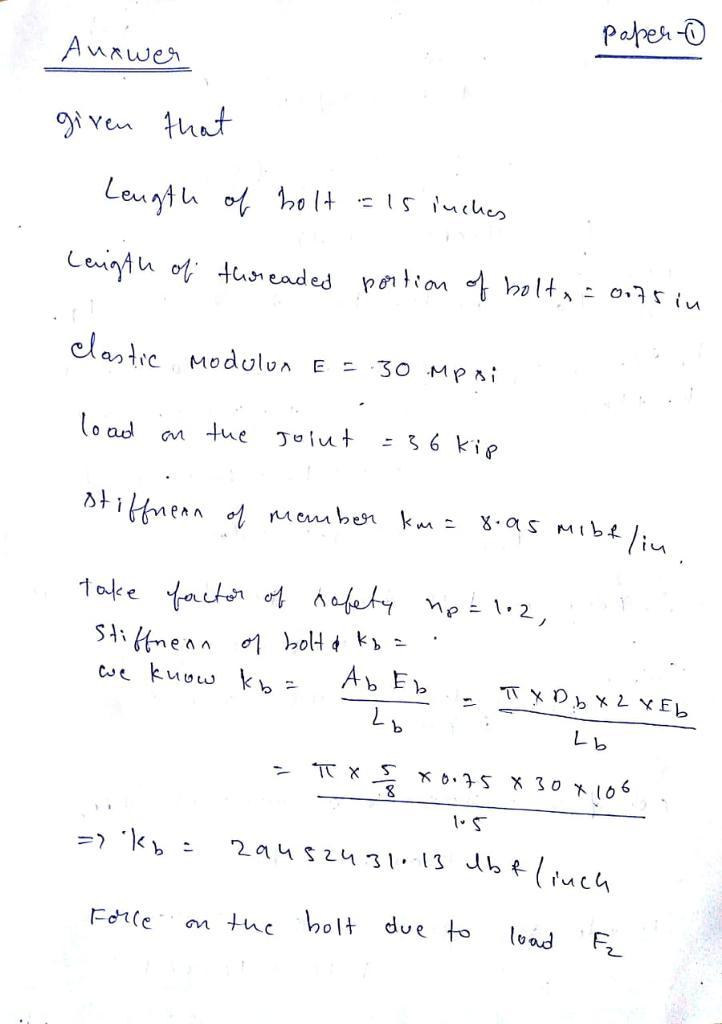 paper-①
Answer
given that
Length of bolt = 15 inches
Length of threaded portion of bolt, = 0.75 in
elastic modulus E = 30 Mpsi
load on the Joint = 36 kip
stiffness of member km = 8.95 Mlbf/in.
take factor of safety np = 1.2,
Stiffness of bolt kb =
we know kb = Ab Eb / Lb = π x Db x 2 x Eb / Lb
= π x 5/8 x 0.75 x 30 x 10⁶ / 1.5
=> kb = 29452431.13 lbf/inch
Force on the bolt due to load F2